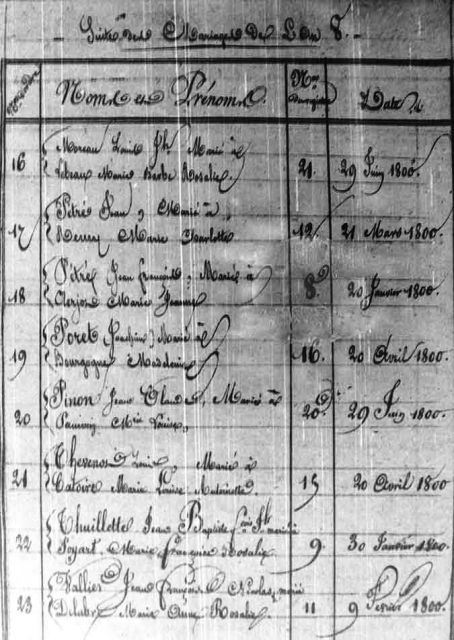 Suite des Mariages De L'an 8.
Noms et Prénoms. Nos Date
Moreau Louis Jh Marié à
16 Marie Barbe Rosalie 21. 29 Juin 1800.
Pétré Jean, Marié à
17 Marie Charlotte 12. 21 Mars 1800.
Pétré Jean François, Marié à
18 Clerjon Marie Jeanne 8. 20 Janvier 1800.
Poret Joachim, Marié à
19 Bourgogne Madeleine 16. 20 Avril 1800.
Pinon Jean Claude, Marié à
20 Mie Louise, 20. 29 Juin 1800.
Thevenot Louis, Marié à
21 Marie Louise Antoinette. 15 20 Avril 1800
Thuillette Jean Baptiste marié à
22 Marie Françoise Rosalie 9. 30 Janvier 1800.
Vallier Jean François Nicolas, marié
23 Delabre Marie Anne Rosalie. 11 9 Fevrier 1800.